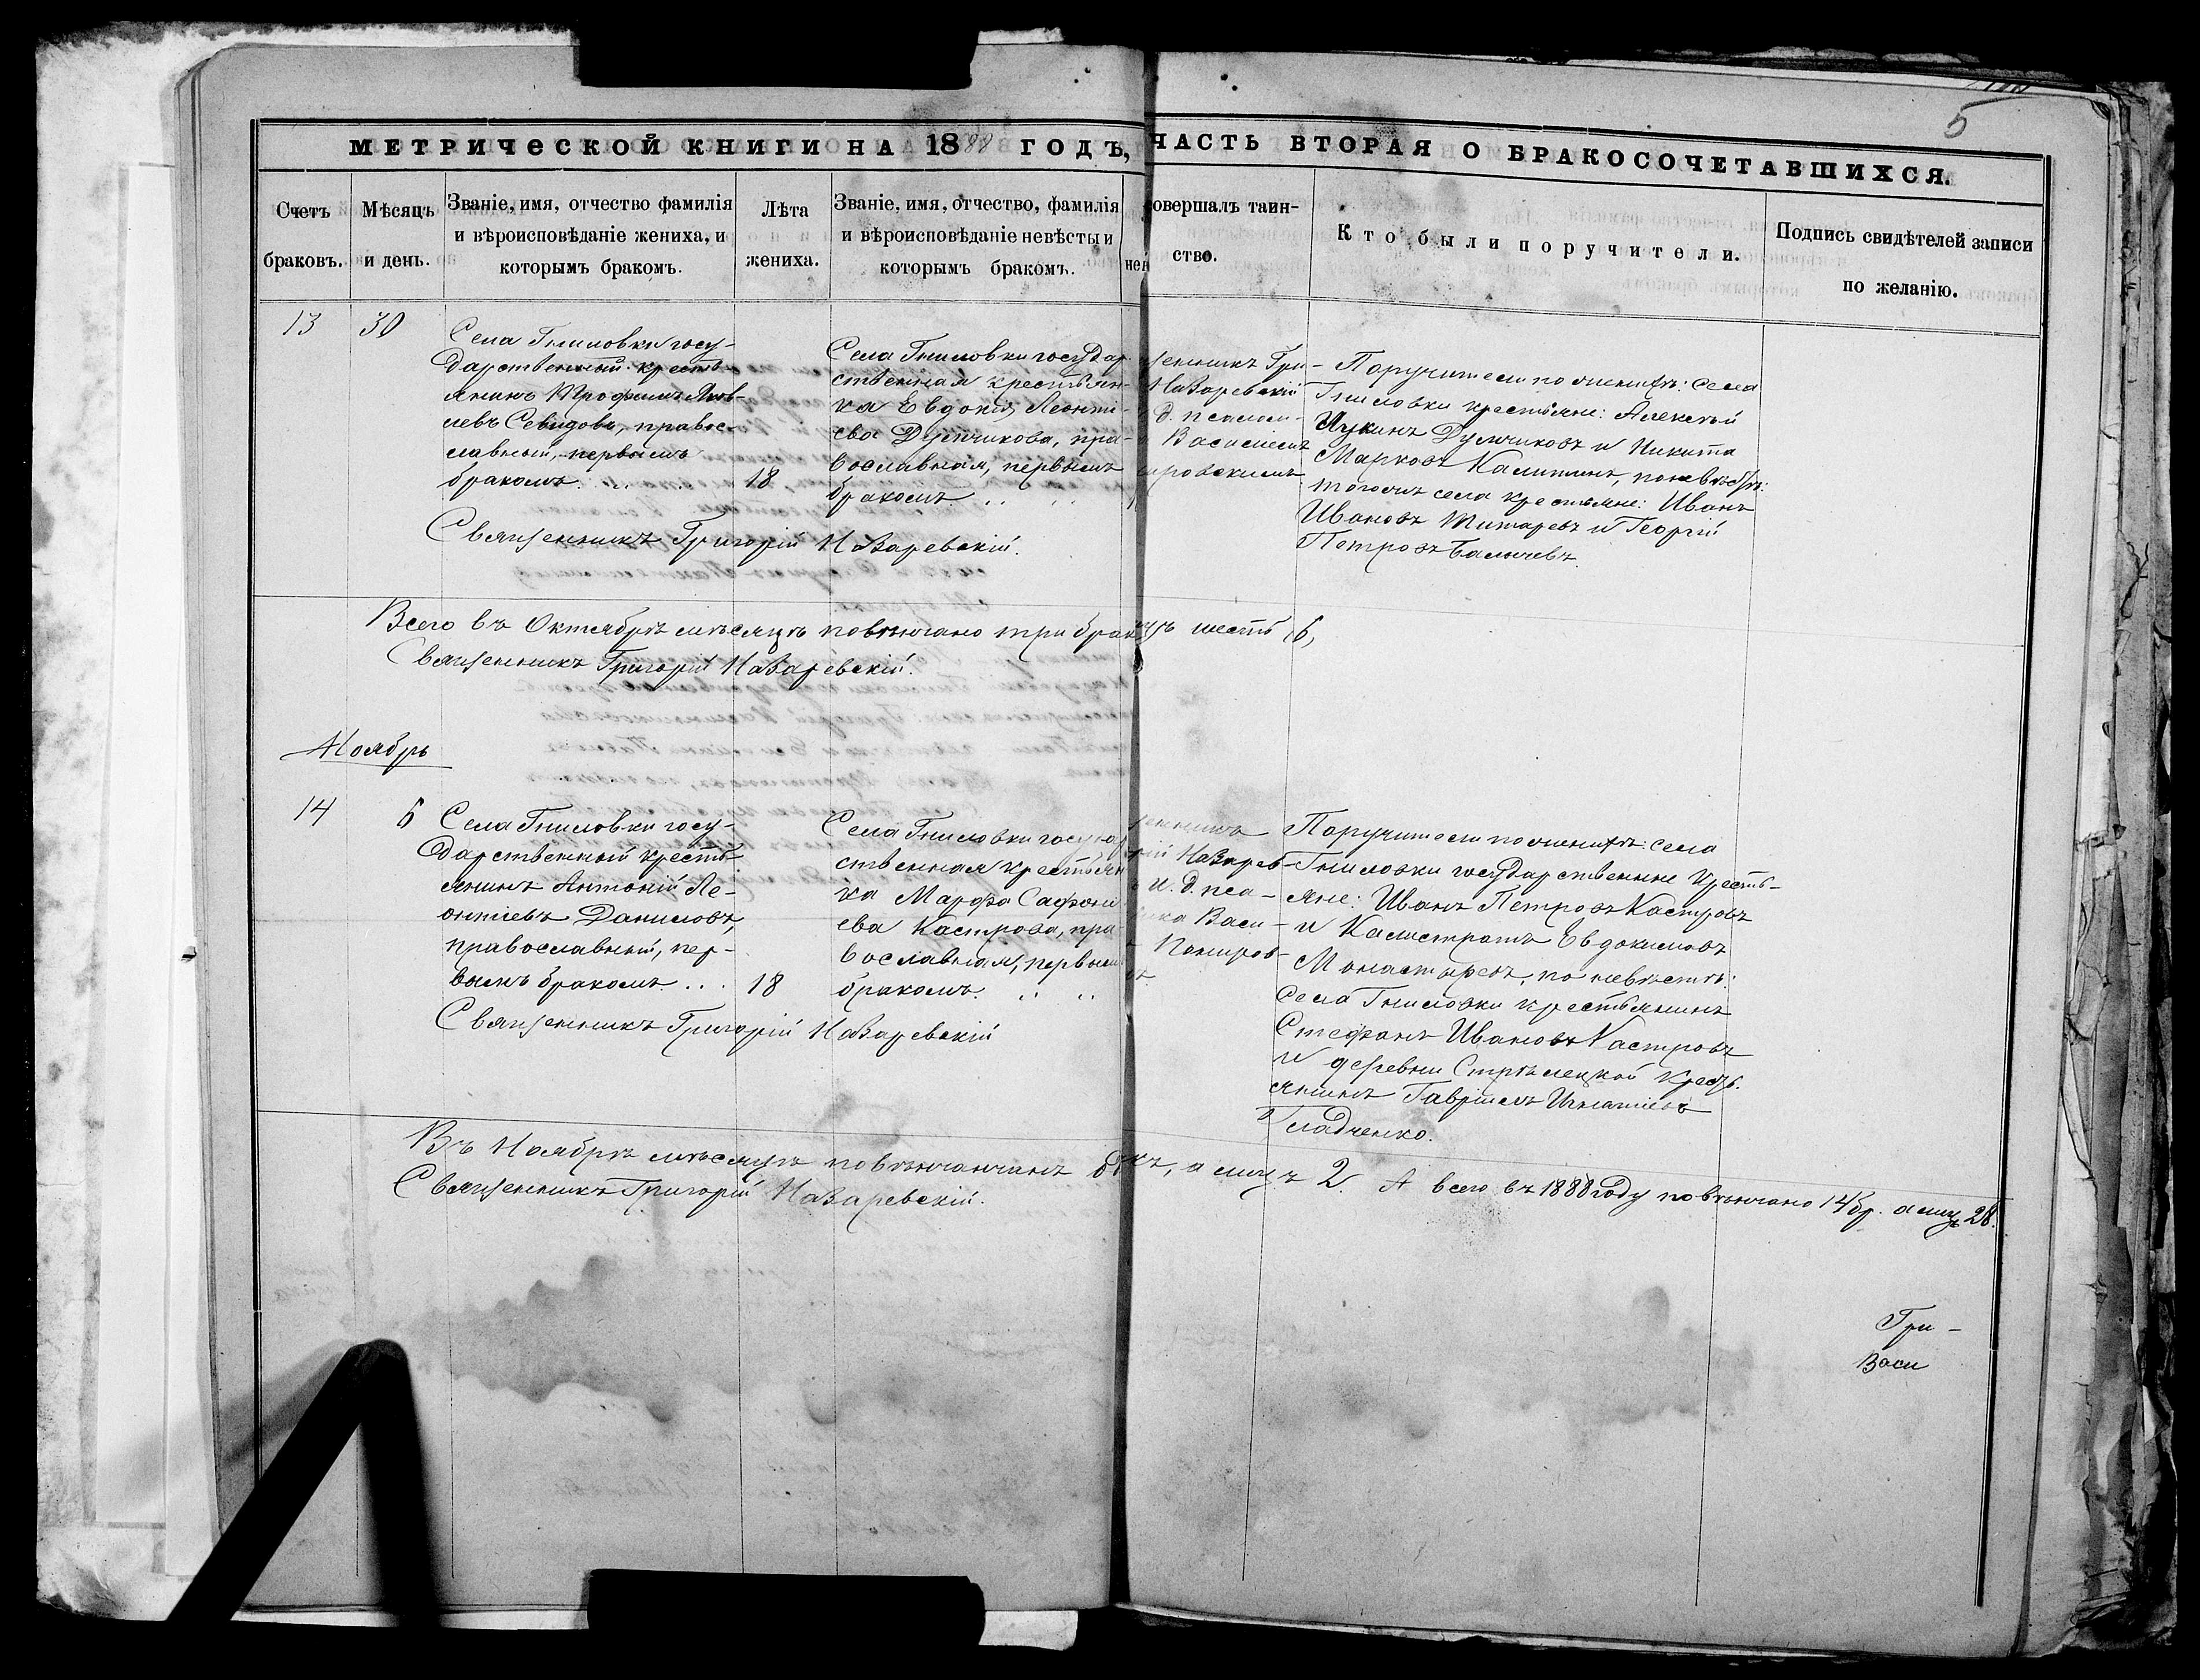 5
МЕТРИЧЕСКОЙ КНИГИ НА 1888 ГОДЪ, ЧАСТЬ ВТОРАЯ О БРАКОСОЧЕТАВШИХСЯ.
Счетъ
браковъ.
Мѣсяцъ
и день.
Званіе, имя, отчество фамилія
и вѣроисповѣданіе жениха, и
которымъ бракомъ.
Лѣта
жениха.
Званіе, имя, отчество, фамилія
и вѣроисповѣданіе невѣсты и
которымъ бракомъ.
овершалъ таин-
ство.
Кто были поручители.
Подпись свидѣтелей записи
по желанію.
13
30
Села Гниловки госу-
дарственный кресть-
янинъ Трофимъ Яков-
левъ Севидовъ, правос-
славный, первымъ
бракомъ
18
Села Гниловки государ-
ственная крестьян-
ка Евдокія Леонті-
ева Думчикова, пра-
вославная, первымъ
бракомъ
щенникъ Гри-
Назаревскій
д. псалом-
Василіемъ
ировскимъ
Поручители по женихѣ: села
Гниловки крестьяне: Алексѣй
Лукинъ Думчиковъ и Никита
Марковъ Калитинъ, по невѣстѣ:
тогожъ села крестьяне: Иванъ
Ивановъ Титаревъ и Георгій
Петровъ Балычевъ.
Священникъ Григорій Назаревскій.
Всего въ Октябрѣ мѣсяцѣ повѣнчано три брак цъ шесть 6,
Священникъ Григорій Назаревскій.
Ноябрь
14
6
Села Гниловки госу-
дарственный кресть-
янинъ Антоній Ле-
онтіевъ Даниловъ,
православный, пер-
вымъ бракомъ
18
Села Гниловки государ
ственная крестьян
ка Марфа Сафоні
ева Кастрова, пра-
вославная, первым
бракомъ
щенникъ
рій Назарев-
и. д. пса-
ика Васи-
Поктров-
Поручители по женихѣ: села
Гниловки государственные кресть-
яне: Иванъ Петровъ Кастровъ
и Калистратъ Евдокимовъ
Монастыревъ, по невѣстѣ:
Села Гниловки крестьянинъ
Стефанъ Ивановъ Кастровъ
и деревни Стрѣлецкой крест.
янинъ Гавріилъ Игнатіевъ
Гладченко.
Священникъ Григорій Назаревскій
Въ Ноябрѣ мѣсяцѣ повѣнчанъ б къ, а лицъ 2. А всего въ 1888 году повѣнчано 14 бр. а лицъ 28.
Священникъ Григорій Назаревскій.
Гри-
Васи